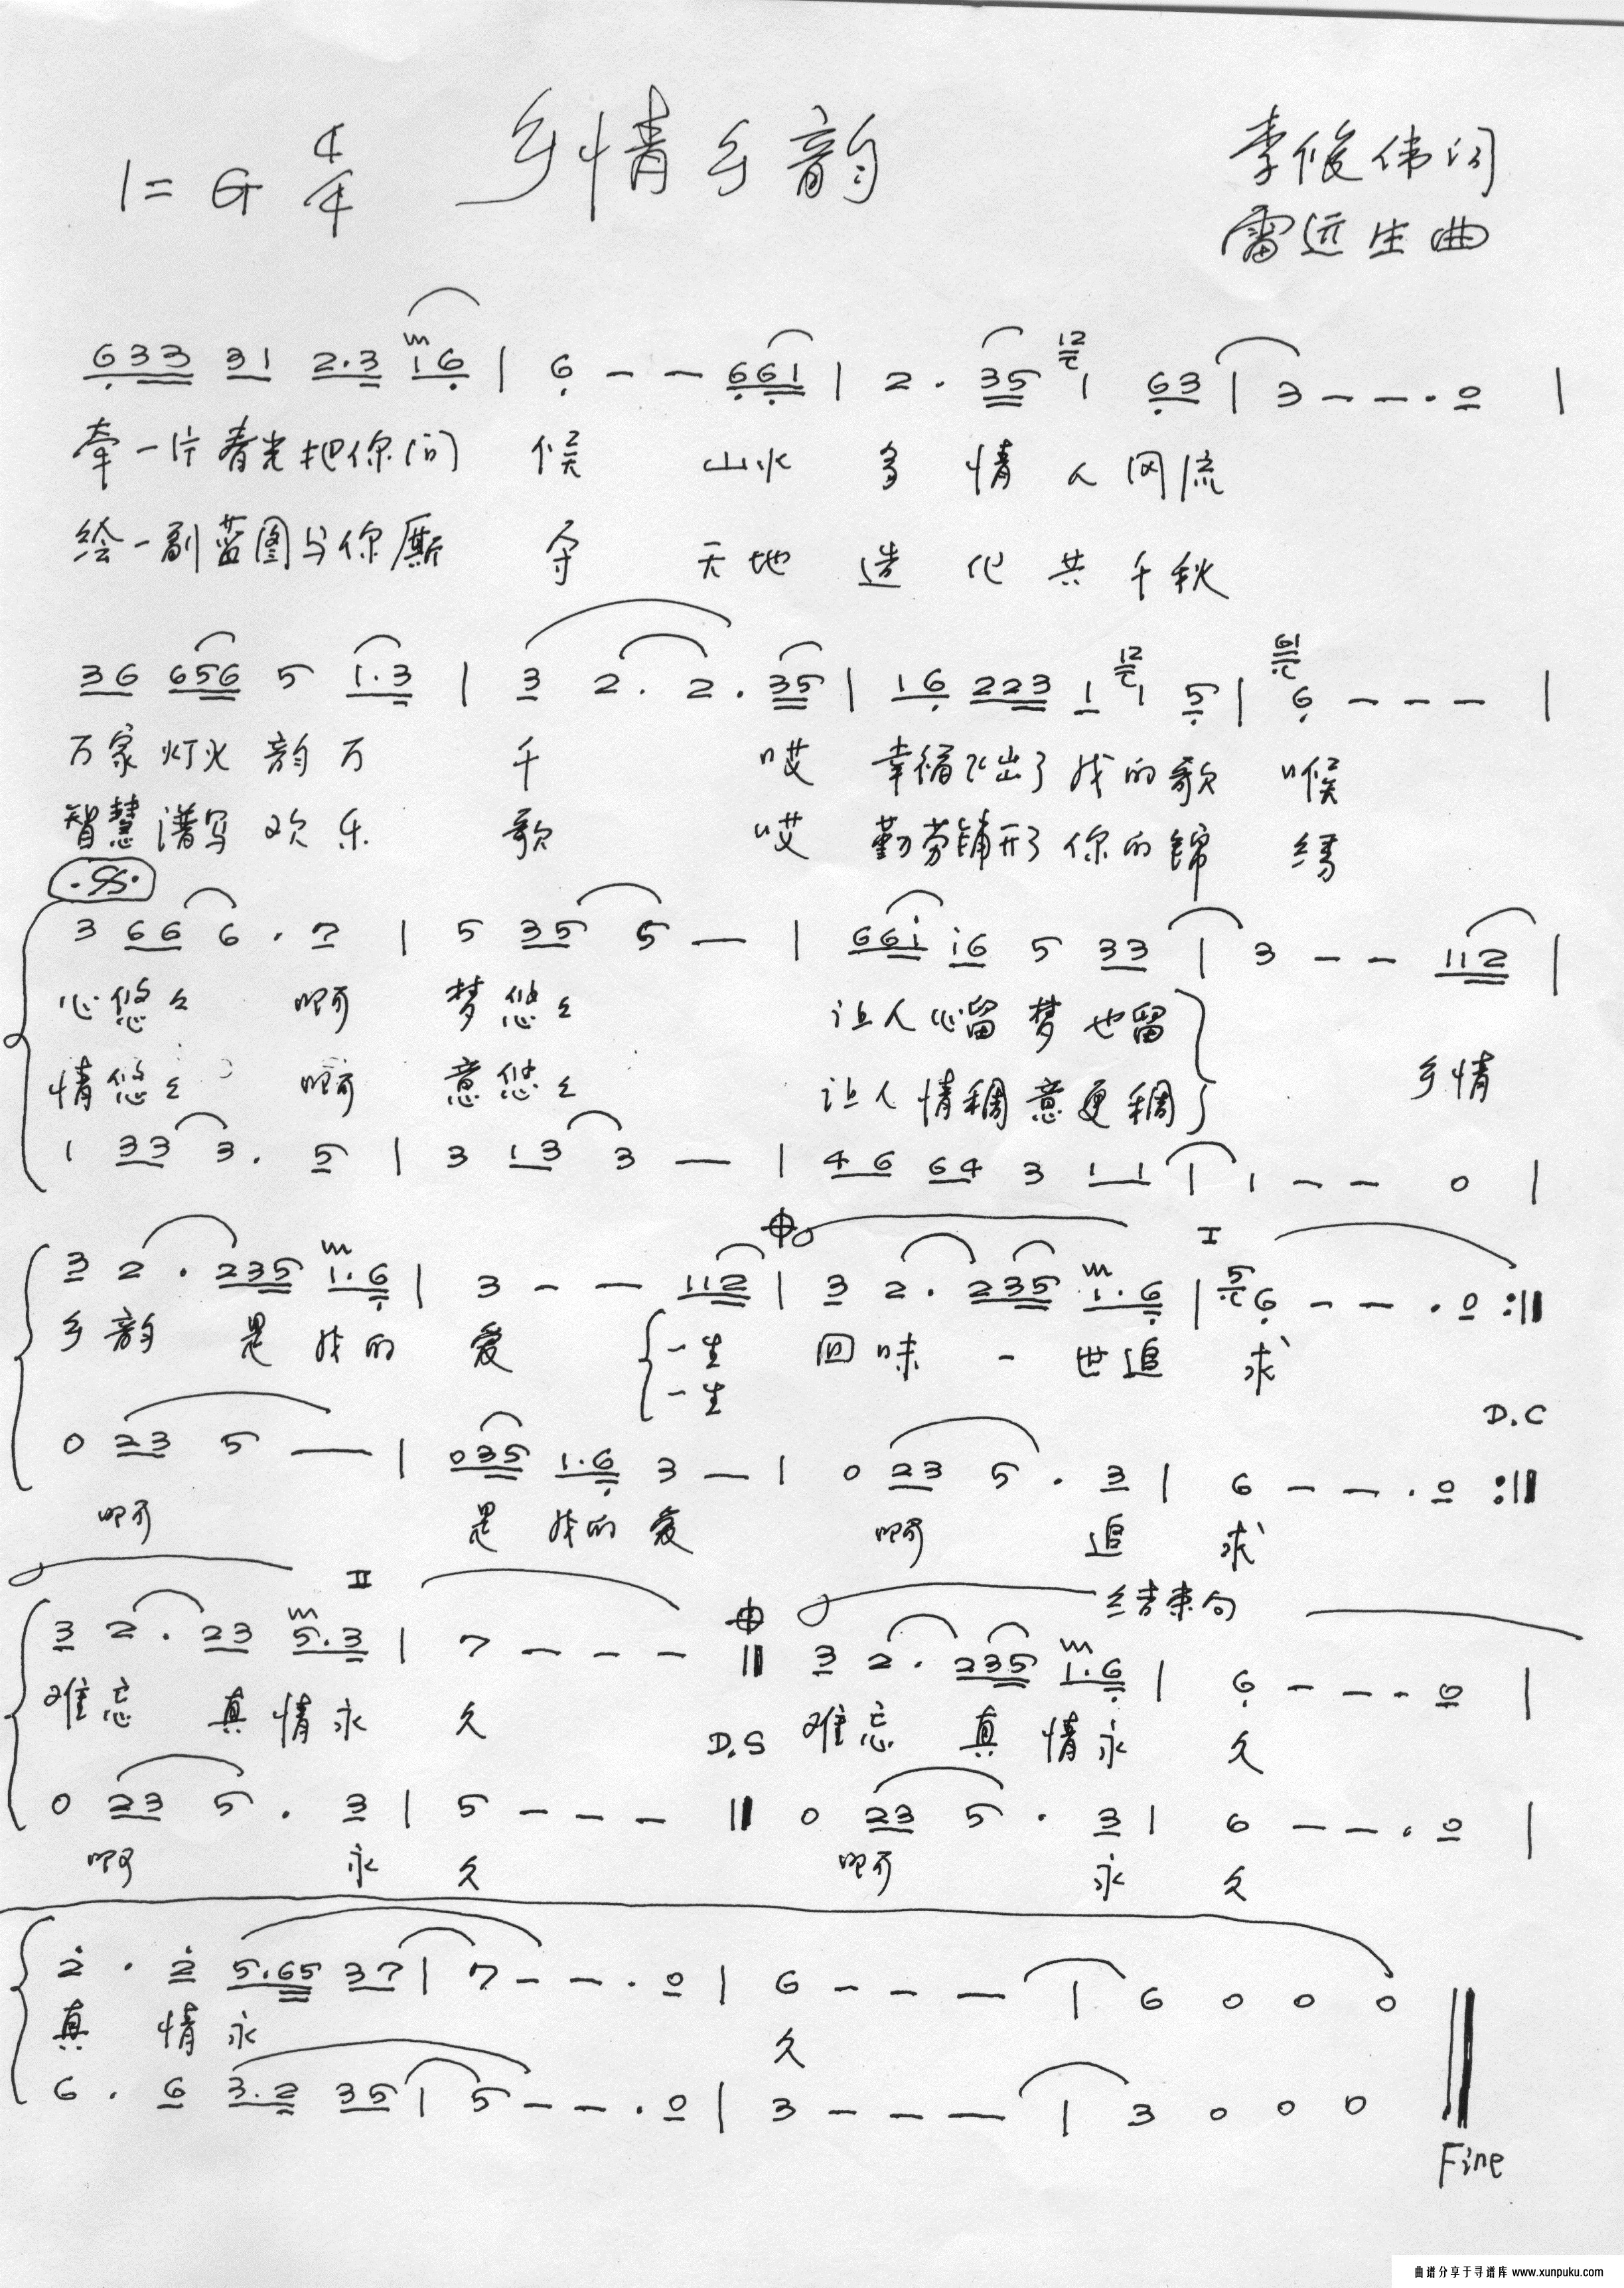 1=G 4/4 乡情乡韵 李俊伟词
雷远生曲
633 31 2.3 16 | 6 - - 661 | 2 . 35 12 1 63 | 3 - - . 0 |
牵一片春光把你问 候 山水 多 情 人风流
绘一副蓝图与你厮 守 天地 造 化 共 千秋
36 656 5 1.3 | 3 2 . 2 . 35 | 16 223 1 12 1 5 | 61 6 - - - |
万家 灯火 韵万 千 哎 幸福飞出了 我的歌 喉
智慧 谱写 欢乐 歌 哎 勤劳铺开了 你的锦 绣
3 66 6 . 7 | 5 35 5 - | 66i i6 5 33 | 3 - - 112 |
心悠々 啊 梦悠々 让人心留梦也留
情悠々 啊 意悠々 让人情稠意更稠 乡情
1 33 3 . 5 | 3 13 3 - | 46 64 3 11 | 1 - - 0 |
I
3 2 . 235 1.6 | 3 - - 112 | 3 2 . 235 1.6 | 5 6 - - . 0 :||
乡韵 是 我的 爱 一生 回味 一 世追 求
一生
D.C
0 23 5 - | 035 1.6 3 - | 0 23 5 . 3 | 6 - - . 0 :||
啊 是 我的 爱 啊 追 求
II 结束句
3 2 . 23 5.3 | 7 - - - || 3 2 . 235 1.6 | 6 - - . 0 |
难忘 真情永 久 D.S 难忘 真 情永 久
0 23 5 . 3 | 5 - - - || 0 23 5 . 3 | 6 - - . 0 |
啊 永 久 啊 永 久
2 . 2 5.65 37 | 7 - - . 0 | 6 - - - | 6 0 0 0
真 情 永 久
6 . 6 3.2 35 | 5 - - . 0 | 3 - - - | 3 0 0 0
Fine
曲谱分享于寻谱库 www.xunpuku.com